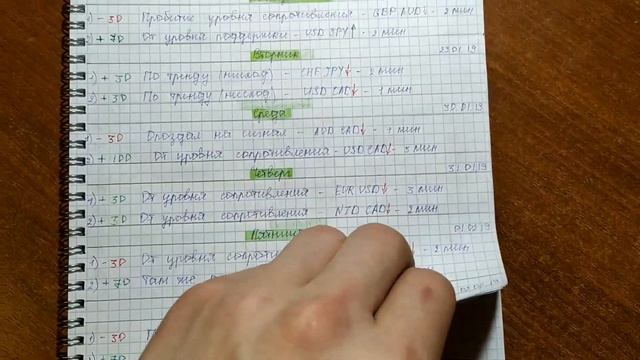 1) - 3D Пробитие уровня сопротивления - GBP AUD↓ - 2 мин
2) + 7D От уровня поддержки - USD JPY↑ - 2 мин
Вторник 29.01.19
1) + 3D По тренду (нисход) - CHF JPY↓ - 2 мин
2) + 3D По тренду (нисход) - USD CAD↓ - 1 мин
Среда 30.01.19
1) - 3D Опоздал на сигнал - AUD CAD↓ - 1 мин
2) + 10D От уровня сопротивления - USD CAD↓ - 3 мин
Четверг 31.01.19
1) + 3D От уровня сопротивления - EUR USD↓ - 3 мин
2) + 3D От уровня сопротивления - NZD CAD↓ - 2 мин
01.02.19
1) - 3D От уровня ↓ - 2 мин
2) + 7D Там же
1) - 3D
2) + 7D